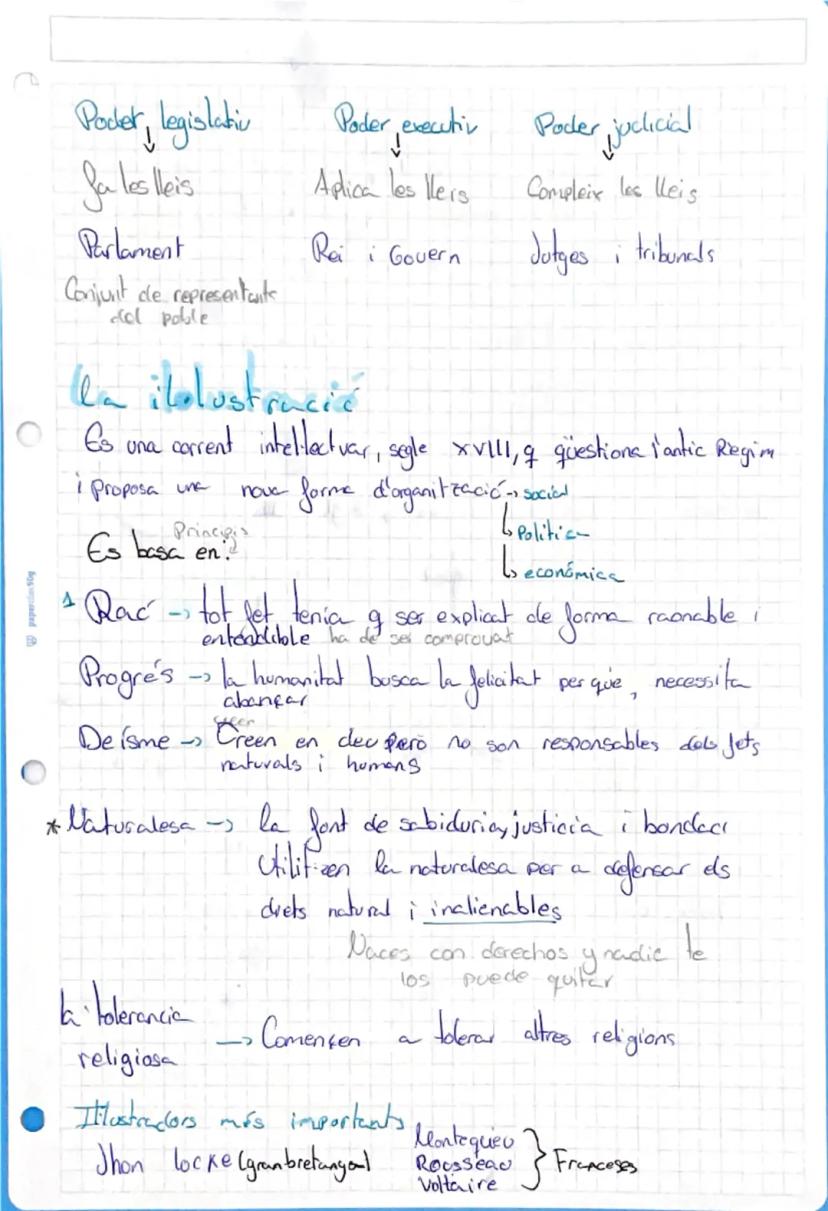 Poder legislatiu Poder executiv Poder judicial
fa les lleis Aplica les lleis Compleix les lleis
Parlament Rei i Govern Jutges i tribunals
Conjunt de representants
del poble
la ilolustració
Es una corrent intel·lectuar, segle XVIII, q qüestiona l'antic Règim
i proposa una nova forma d'organització → social
↳ Política
↳ económica
Principis
Es basa en:
1 Raó → tot fet tenia q ser explicat de forma raonable i
entendible ha de ser comprovat
Progrés → la humanitat busca la felicitat per que, necessita
abançar
creen
Deísme → Creen en deu però no son responsables dels fets
naturals i humans
* Naturalesa → la font de sabiduria, justicia i bondad
Utilitzen la naturalesa per a defensar els
drets natural i inalienables
Naces con derechos y nadie te
los puede quitar
la tolerancia
religiosa → Comencen a tolerar altres religions
Il·lustradors més importants
Jhon locke (granbretanya)
Montequieu
Rousseau
Voltaire
} Franceses
paperclan 90g